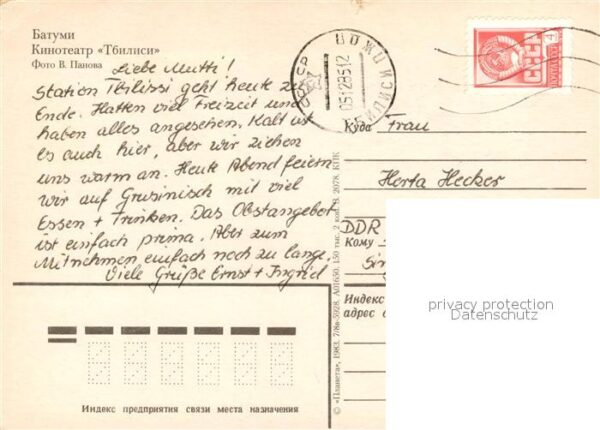 Батуми
Кинотеатр «Тбилиси»
Фото В. Панова
Liebe Mutti!
Station Tbilissi geht heute zu
Ende. Hatten viel Freizeit und
haben alles angesehen. Kalt ist
es auch hier, aber wir ziehen
uns warm an. Heute Abend feiern
wir auf Grusinisch mit viel
Essen + Trinken. Das Obstangebot
ist einfach prima. Aber zum
Mitnehmen einfach noch zu lange.
Viele Grüße Ernst + Ingrid
СССР
05128512
4
СССР
ПОЧТА
Куда Frau
Herta Hecker
DDR
Кому
Индекс
адрес
privacy protection
Datenschutz
© «Планета», 1983.
Индекс предприятия связи места назначения